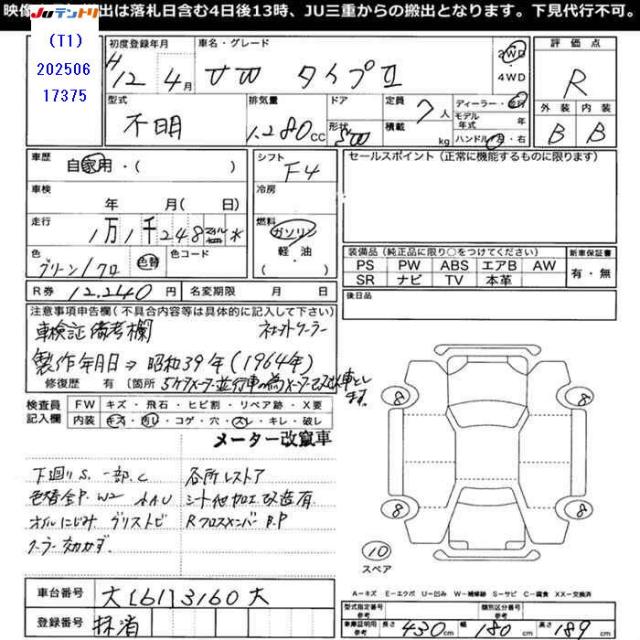 映像 出は落札日含む4日後13時、JU三重からの搬出となります。下見代行不可。
JUテントリ
(T1)
202506
17375
初度登録年月
H12年4月
車名・グレード
タイプⅡ
2WD
4WD
評価点
R
外装 内装
B B
型式
不明
排気量
1,280cc
ドア
形状
定員
7人
積載
kg
ディーラー・並行
モデル年式 年
ハンドル 左・右
車歴
自家用・( )
シフト
F4
車検
年 月( 日)
冷房
走行
1万1千248マイル※
燃料
ガソリン
軽・油
( )
色
グリーン/クロ
色替
色コード
R券 12,240円
名変期限 月 日
セールスポイント(正常に機能するものに限ります)
装備品(純正品に限り○をつけてください)
PS PW ABS エアB AW
SR ナビ TV 本革
新車保証書
有・無
後日品
注意事項申告欄(不具合内容等は具体的に記入して下さい)
車検証備考欄
製作年月日⇒昭和39年(1964年)
修復歴 有 〔箇所
5ケタメーター並行車の為メーター改ざん車とします。
検査員記入欄
FW キズ・飛石・ヒビ割・リペア跡・X要
内装 キズ・汚れ・コゲ・穴・スレ・キレ・破レ
メーター改竄車
下廻りS.一部C 各所レストア
色替全P.W2 AAU シート他加工改造有
オイルにじみ グリストビ RクロスメンバーB.P
クーラー効かず.
8 8
8 8
10
スペア
A−キズ E−エクボ U−凹み W−補修跡 S−サビ C−腐食 XX−交換済
車台番号
登録番号
抹消
型式指定番号 参考
類別区分番号 参考
車庫証明用 参考
長さ 430cm
幅 180cm
高さ 189cm